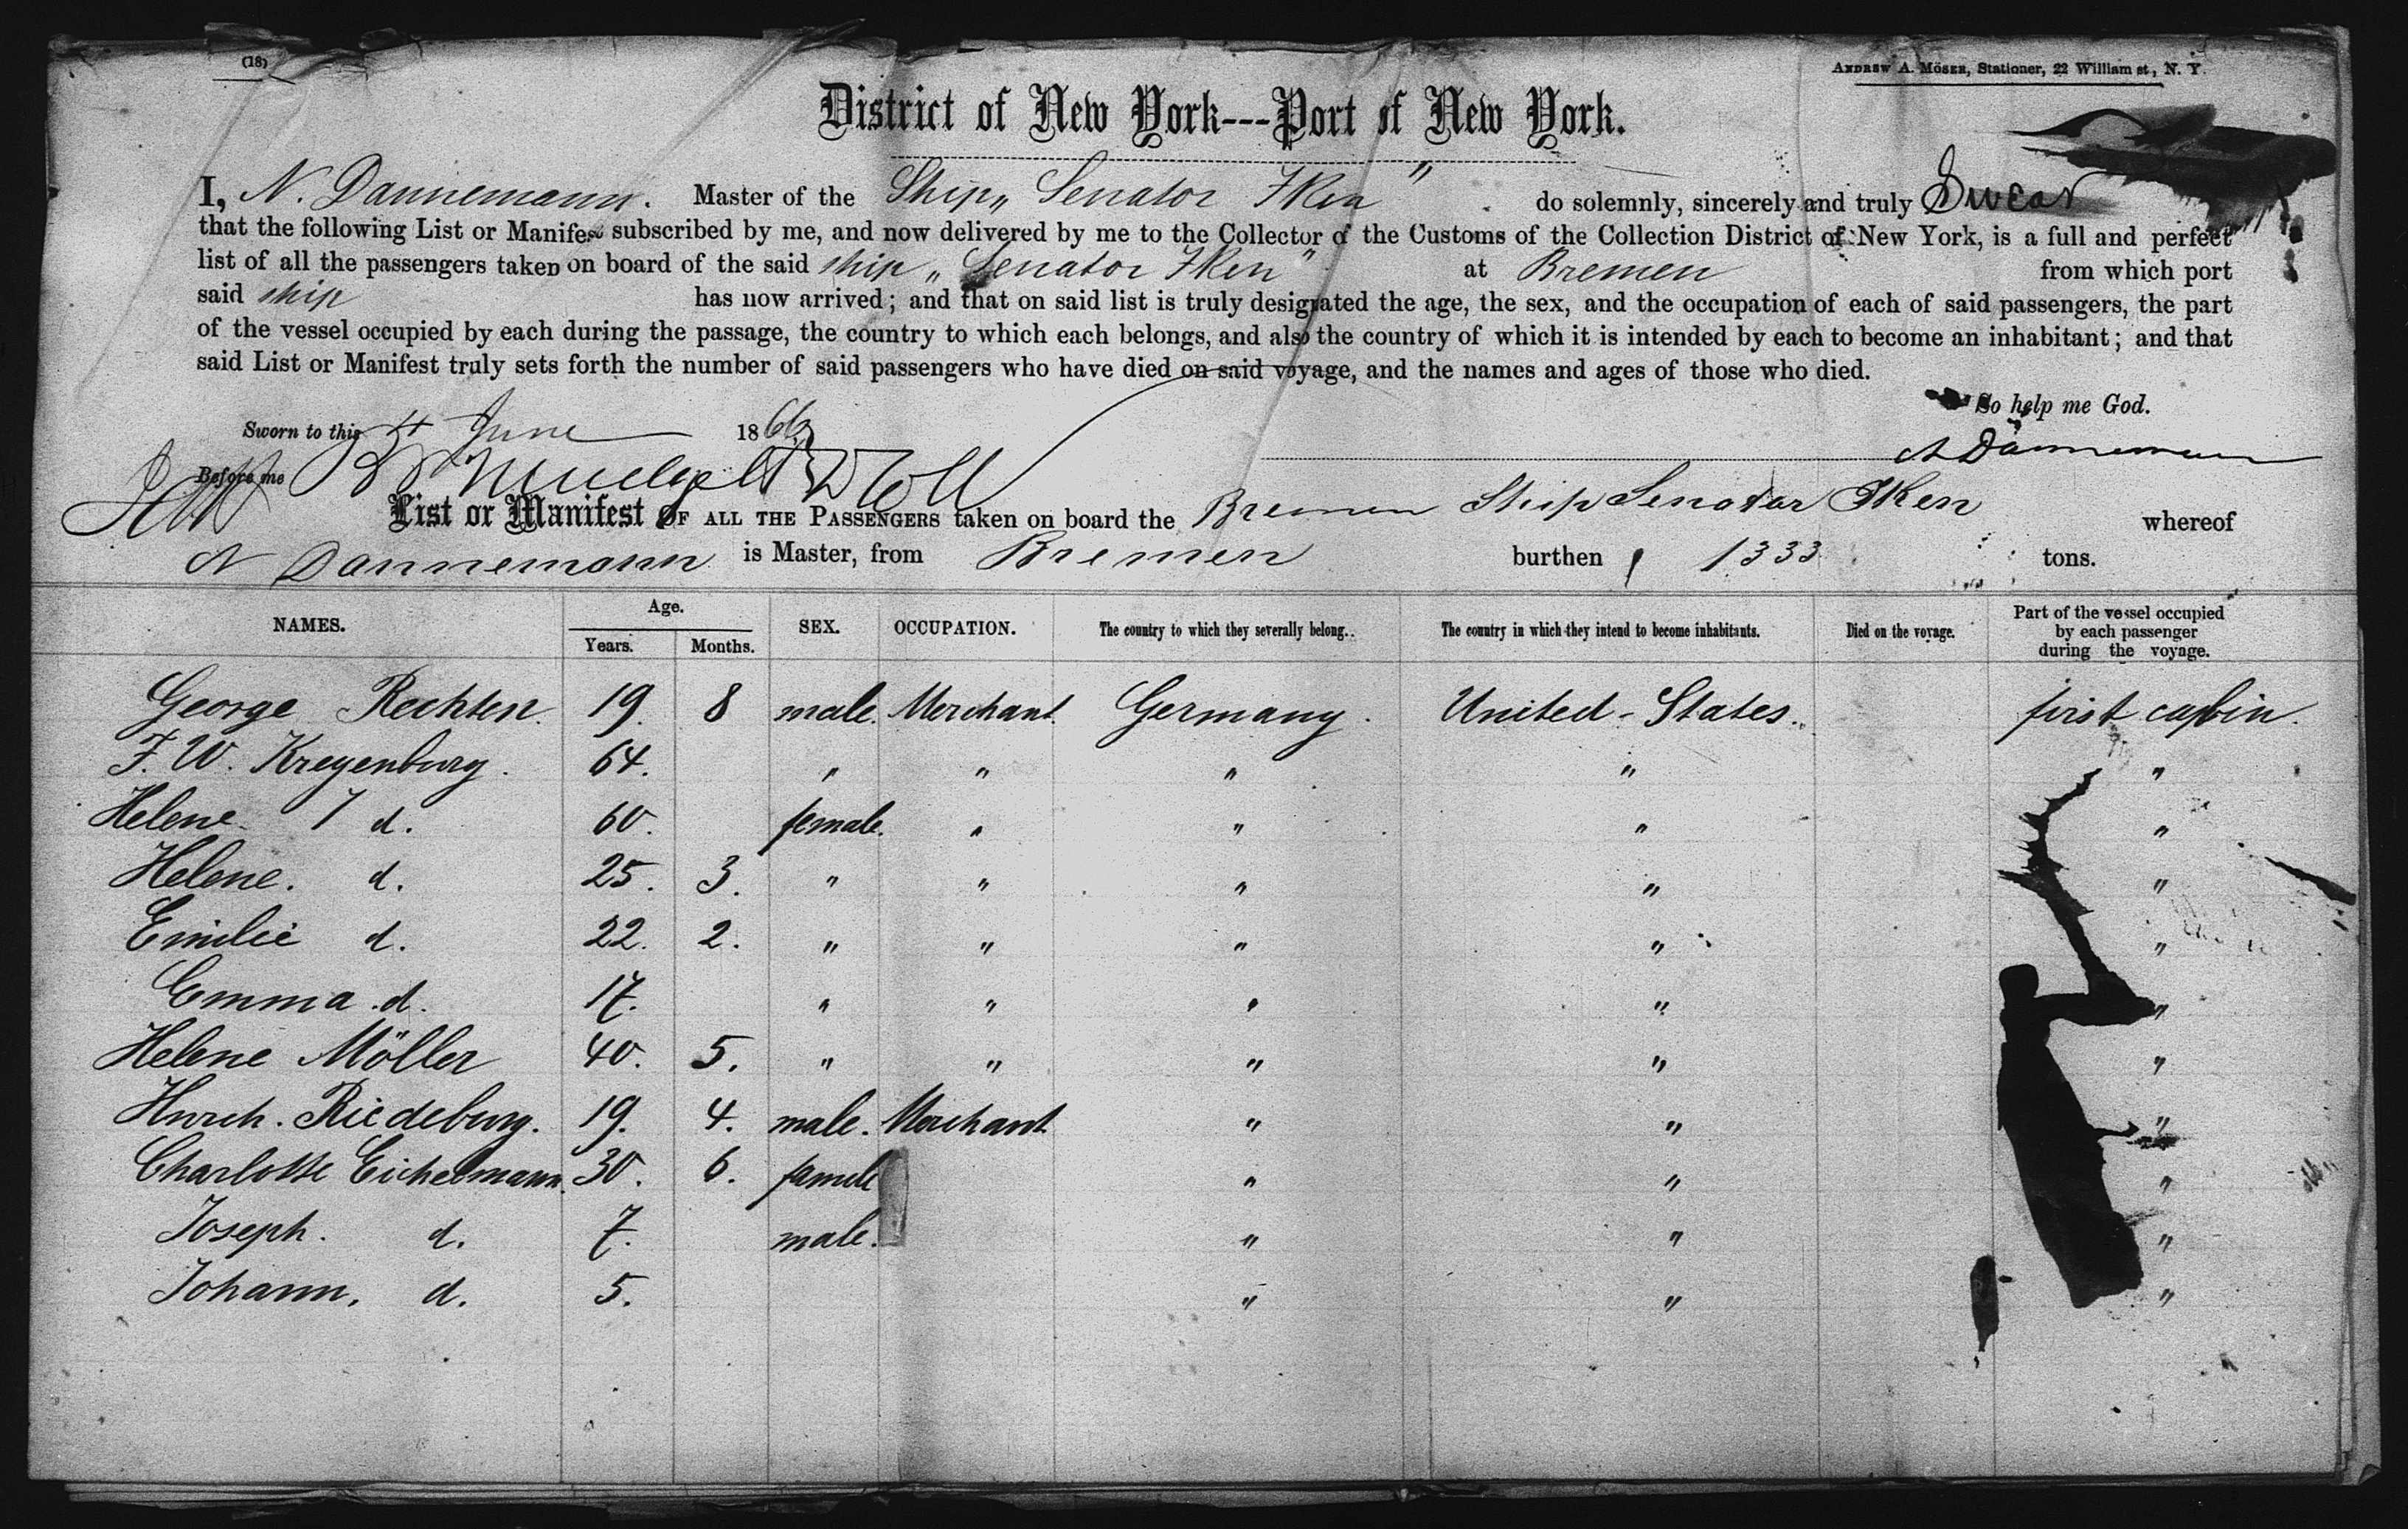 (18)
ANDREW A. MÖSER, Stationer, 22 William st, N. Y.
District of New York---Port of New York.
I, N. Dannemann. Master of the Ship „Senator Iken" do solemnly, sincerely and truly Swear
that the following List or Manifest subscribed by me, and now delivered by me to the Collector of the Customs of the Collection District of New York, is a full and perfect
list of all the passengers taken on board of the said ship „Senator Iken" at Bremen from which port
said ship has now arrived; and that on said list is truly designated the age, the sex, and the occupation of each of said passengers, the part
of the vessel occupied by each during the passage, the country to which each belongs, and also the country of which it is intended by each to become an inhabitant; and that
said List or Manifest truly sets forth the number of said passengers who have died on said voyage, and the names and ages of those who died.
So help me God.
Sworn to this 4 June 1866
N Dannemann
Before me
List or Manifest OF ALL THE PASSENGERS taken on board the Bremen Ship Senator Iken whereof
N Dannemann is Master, from Bremen burthen 1333 tons.
NAMES. Age. Years. Months. SEX. OCCUPATION. The country to which they severally belong. The country in which they intend to become inhabitants. Died on the voyage. Part of the vessel occupied by each passenger during the voyage.
George Rechten. 19. 8 male. Merchant. Germany. United-States. first cabin.
F. W. Kreyenburg. 64. " " " " "
Helene d. 60. female. " " " "
Helene. d. 25. 3. " " " " "
Emilie d. 22. 2. " " " " "
Emma. d. 17. " " " " "
Helene Möller 40. 5. " " " " "
Hinrch. Riedeburg. 19. 4. male. Merchant " " "
Charlotte Eichelmann. 30. 6. famele " " "
Joseph. d. 7. male. " " "
Johann. d. 5. " " "